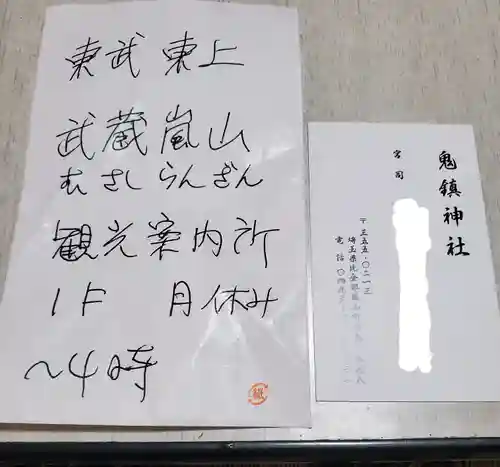 東武東上
武蔵嵐山
むさしらんざん
観光案内所
1F 月休み
～4時
鬼鎮神社
宮司
〒三五五-〇二一三
埼玉県比企郡
電話〇四九